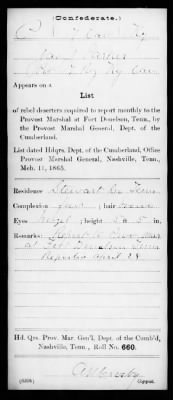 (Confederate.)
Appears on a
List
of rebel deserters required to report monthly to the
Provost Marshal at Fort Donelson, Tenn., by
the Provost Marshal General, Dept. of the
Cumberland.
List dated Hdqrs. Dept. of the Cumberland, Office
Provost Marshal General, Nashville, Tenn.,
Mch. 11, 1865.
Residence Stewart Co Tenn
Complexion ; hair
Eyes Hazel ; height 5 ft. 5 in.
Remarks:
at Fort Donelson Tenn
April 28
Hd. Qrs. Prov. Mar. Gen'l, Dept. of the Comb'd,
Nashville, Tenn., Roll No. 660.
Copyist.